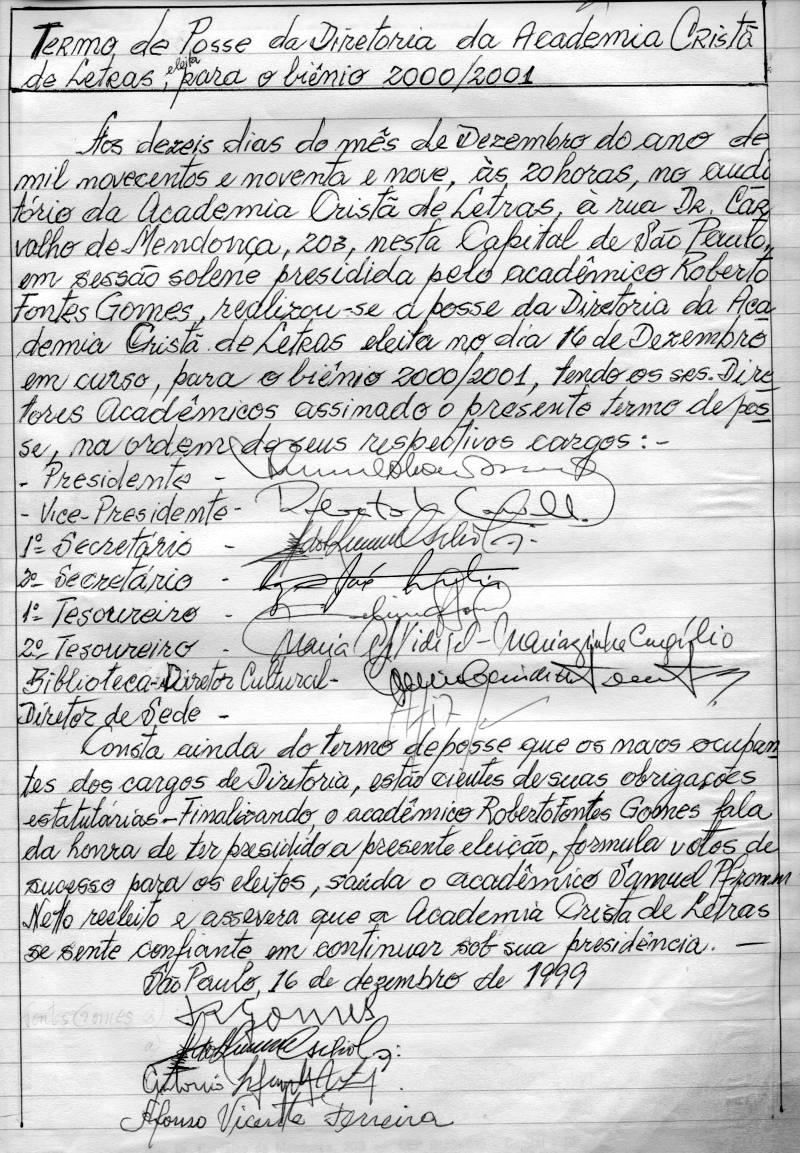 Termo de Posse da Diretoria da Academia Cristã
de Letras, eleita para o biênio 2000/2001
Aos dezeis dias do mês de Dezembro do ano de
mil novecentos e noventa e nove, às 20 horas, no audi
tório da Academia Cristã de Letras, à rua Dr. Car
valho de Mendonça, 203, nesta Capital de São Paulo,
em sessão solene presidida pelo acadêmico Roberto
Fontes Gomes, realizou-se a posse da Diretoria da Aca
demia Cristã de Letras eleita no dia 16 de Dezembro
em curso, para o biênio 2000/2001, tendo os srs. Dire
tores Acadêmicos assinado o presente termo de pos
se, na ordem de seus respectivos cargos:-
- Presidente -
- Vice-Presidente -
1º Secretário -
2º Secretário -
1º Tesoureiro -
2º Tesoureiro - Maria Vidigal - Mariazinha Congílio
Biblioteca-Diretor Cultural-
Diretor de Sede -
Consta ainda do termo de posse que os novos ocupan
tes dos cargos de Diretoria, estão cientes de suas obrigações
estatutárias-Finalizando o acadêmico Roberto Fontes Gomes fala
da honra de ter presidido a presente eleição, formula votos de
sucesso para os eleitos, saúda o acadêmico Samuel Pfromm
Netto reeleito e assevera que a Academia Cristã de Letras
se sente confiante em continuar sob sua presidência. —
São Paulo, 16 de dezembro de 1999
Gomes
Antonio
Afonso Vicente Ferreira